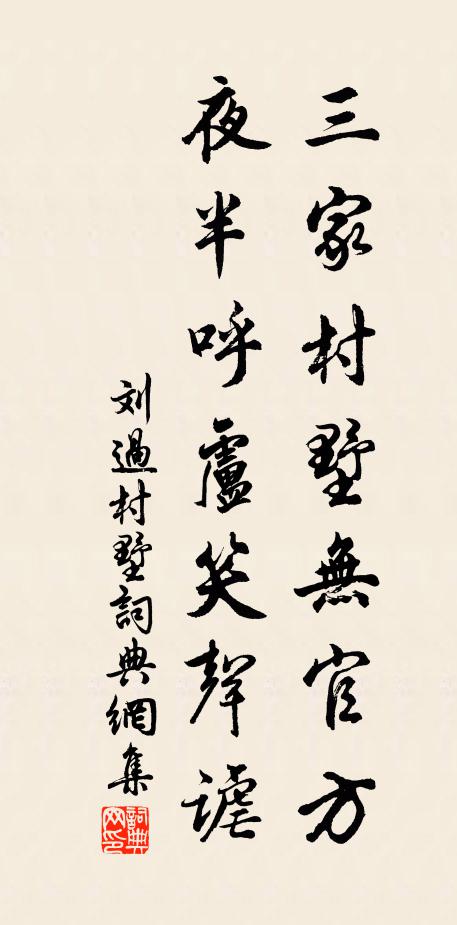 三家村墅無官方
夜半呼盧笑聲謔
刘過村墅詞典網集
詞典網印